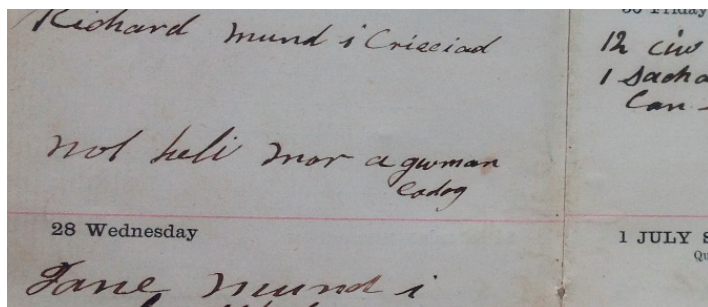 Richard mund i Criciad
not heli mor a gwman
Codog
28 Wednesday
Jane mund i
30 Friday
12 ciw
1 sacha
Can
1 JULY S
Qu